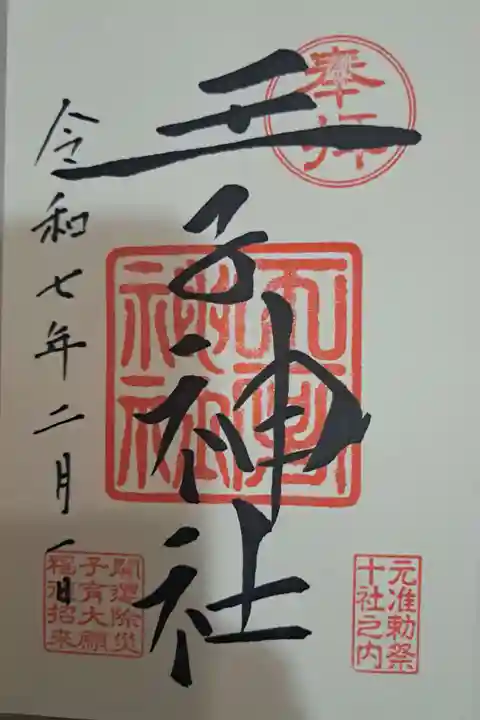 奉拝
王子神社
王子神社
元准勅祭
十社之内
開運除災
子育大願
福徳招来
令和七年二月一日